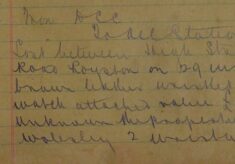 from DCC
To all Station
Lost between High Sta
Road Royston on 29 in
brown leather wristlet
watch attached value £
unknown the property
Wolseley 2